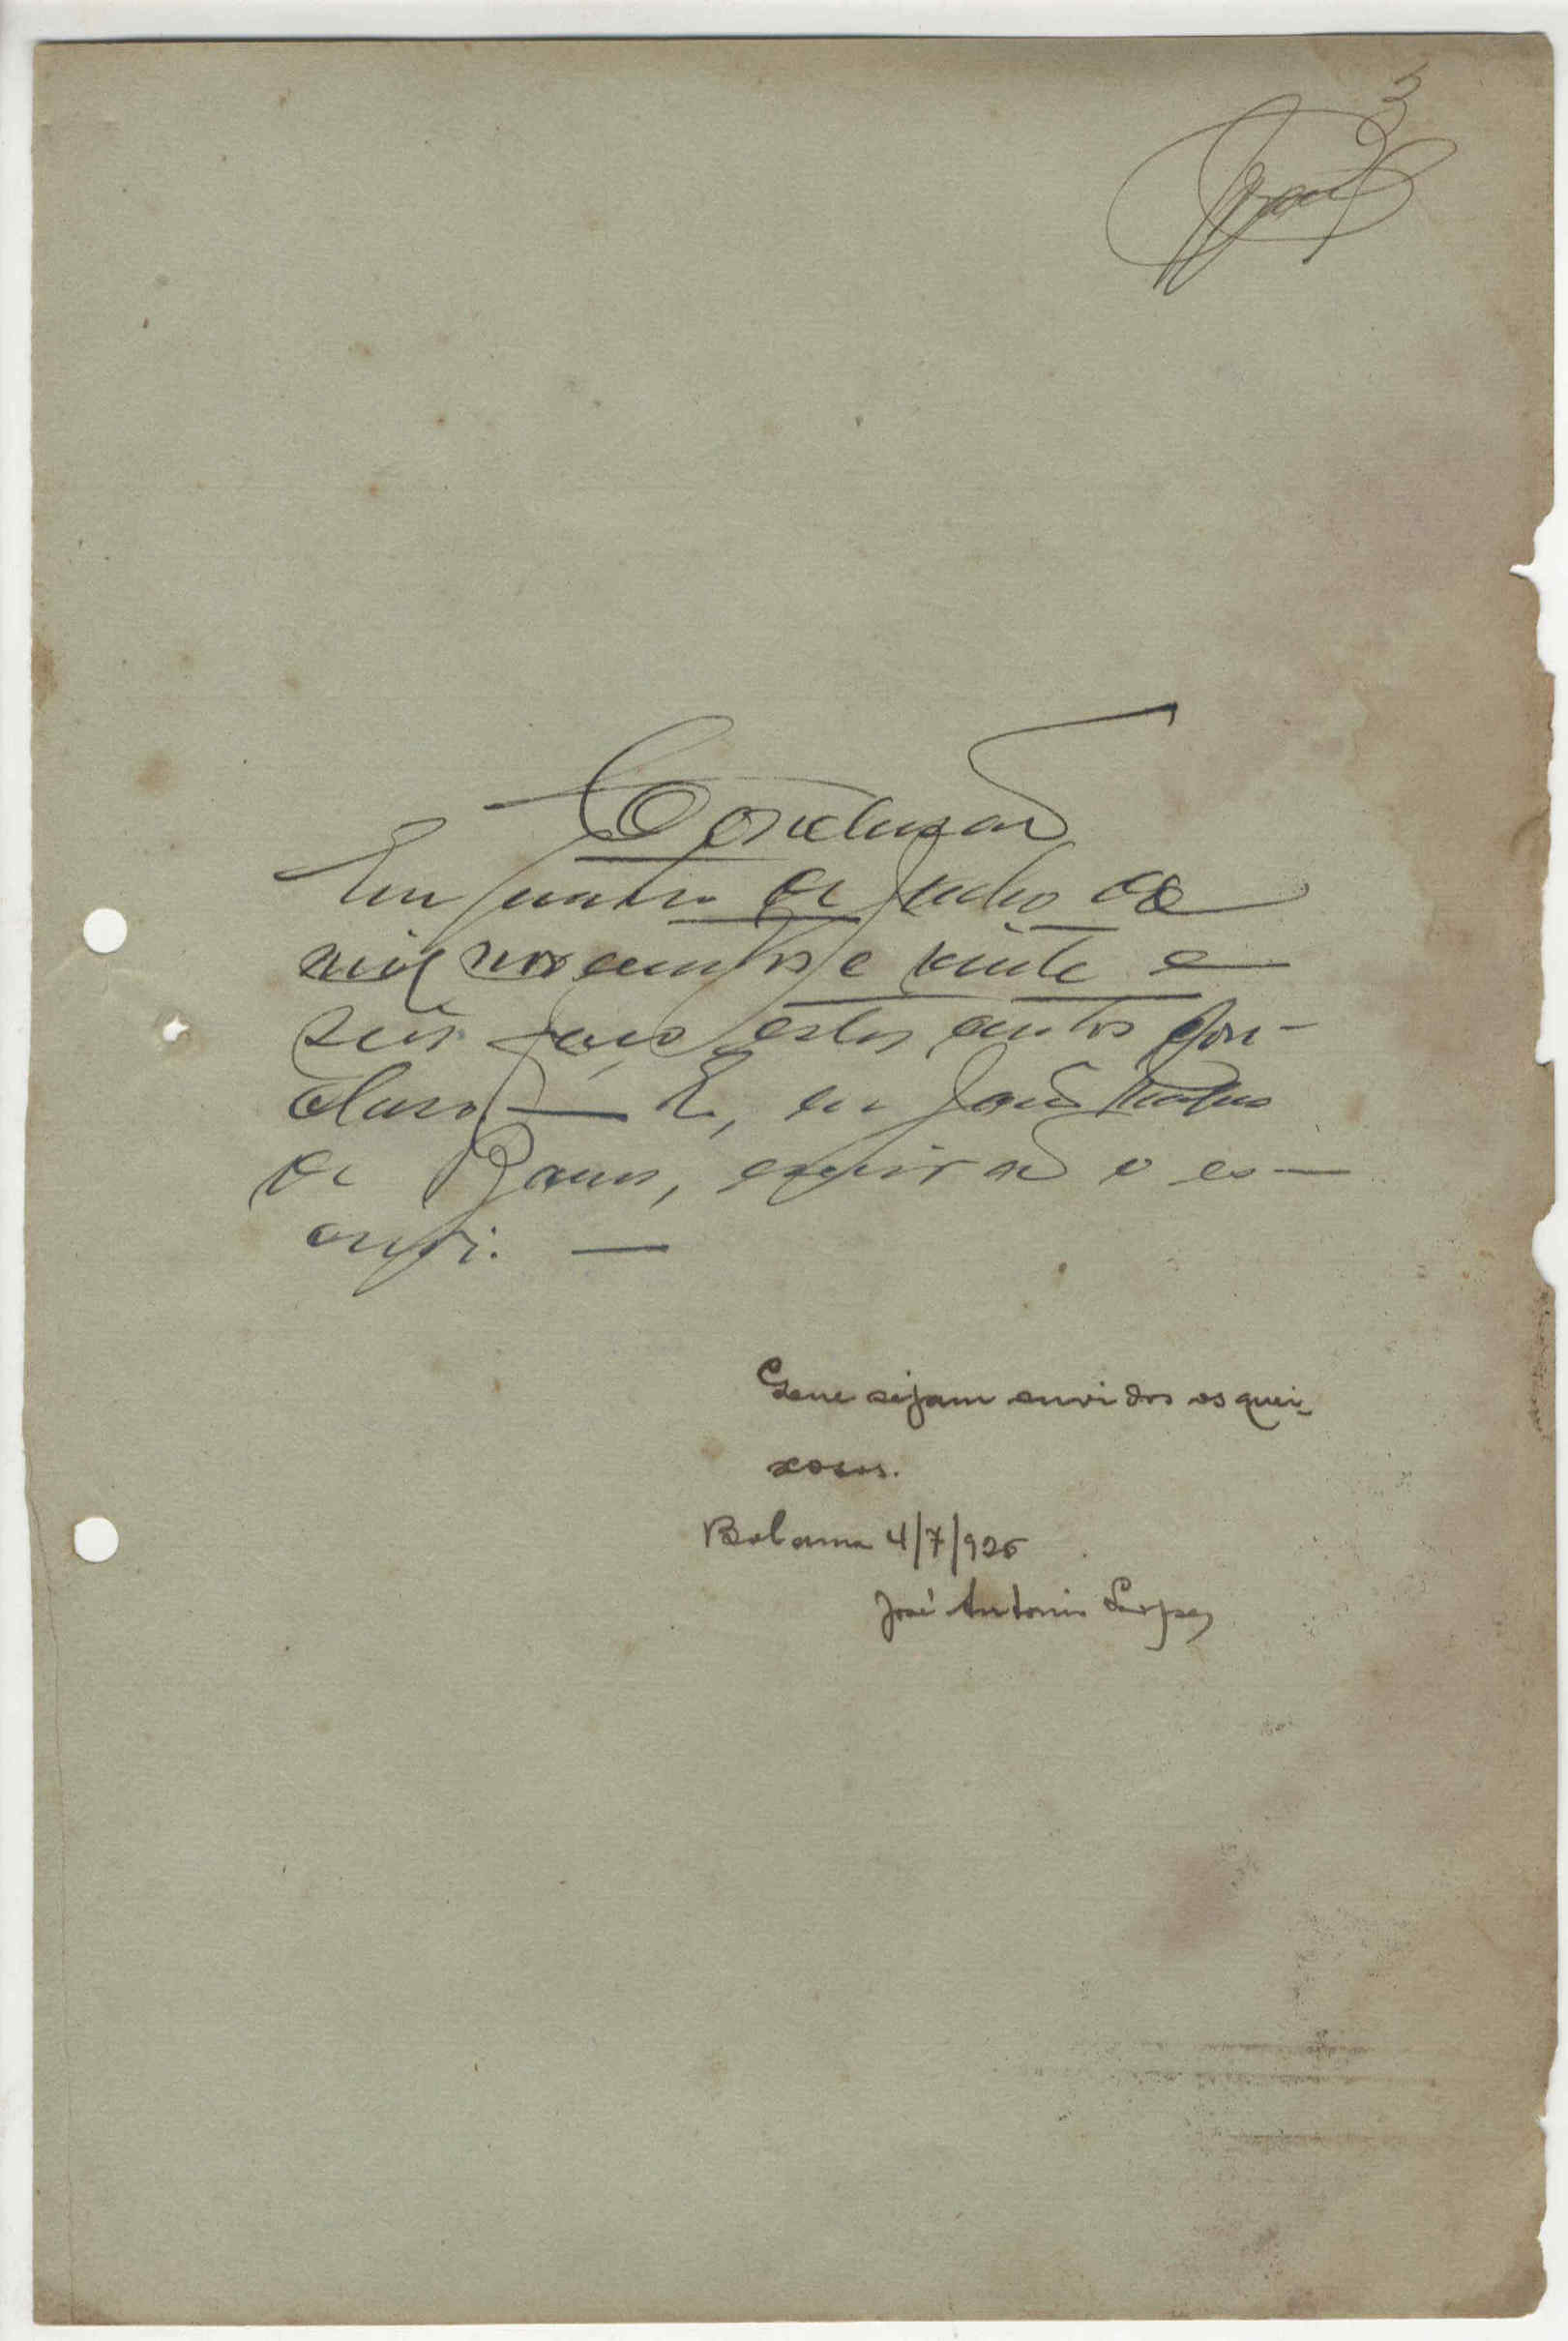 3
Conclusão
Em quatro de Julho de
mil novecentos e vinte e
seis faço estes autos con-
clusos — E, eu João
de Barros, escrivão o es-
crevi. —
sejam ouvidos os quei-
xosos.
Bolama 4/7/926
José Antonio Lopes